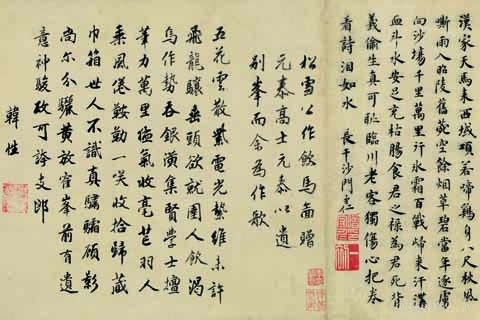 漢家天馬來西域項若帝鷄身八尺秋風
嘶雨入昭陵舊苑空餘烟草碧當年逐虜
向沙場千里萬里汗氷霜百戰歸來汗溝
血斗水安足充枯腸食君之祿為君死背
義偷生真可恥臨川老客獨傷心把卷
看詩泪如水 長干沙門
松雪公作飲馬啚贈
元泰高士元泰以遺
別峯而余為作歌
五花雲散紫電光縶維未許
飛龍驤垂頭欲就圉人飲渴
烏作勢吞銀潢集賢學士擅
筆力萬里猛氣收毫芒羽人
乘風倦鞍勒一笑收拾歸藏
巾箱世人不識真驌驦顧影
尚尔分驪黃放峯前有遺
意神駿政可誇支郎
韓性